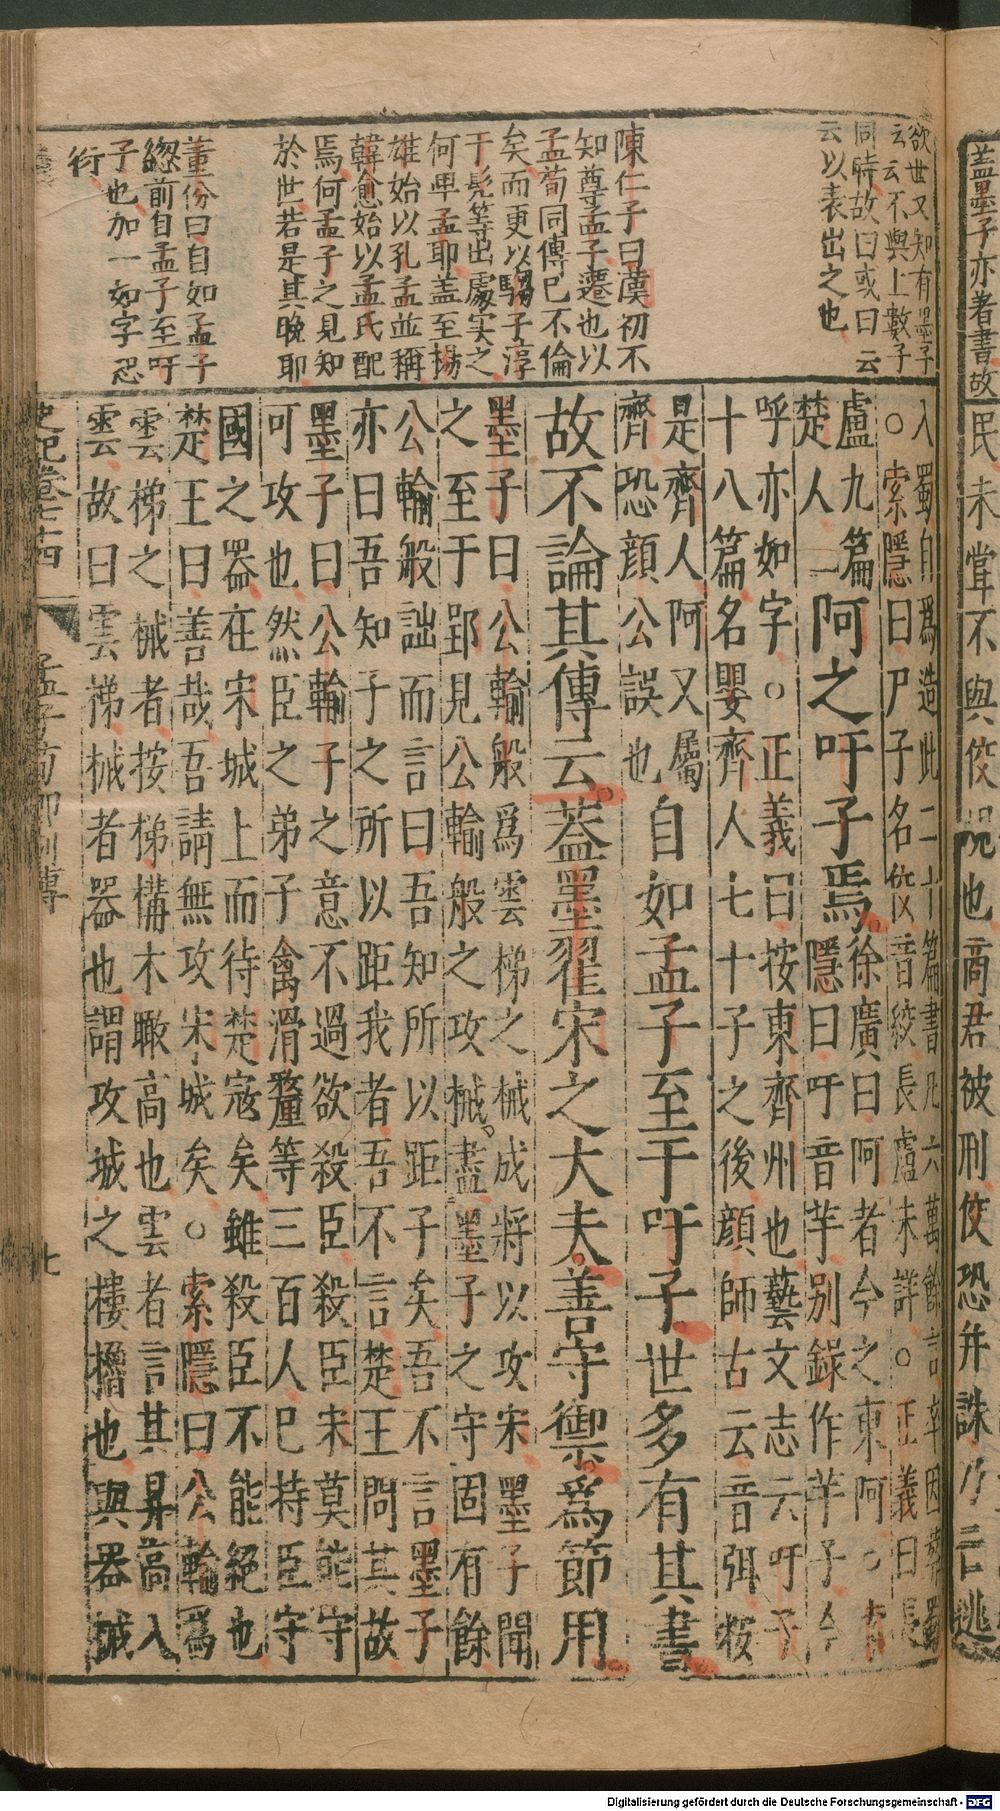 蓋墨子亦著書故
欲世又知有墨子
云云不與上數子
同時故曰或曰云
云以表出之也
陳仁子曰漢初不
知尊孟子遷也以
孟荀同傳已不倫
矣而更以騶子淳
于髡等出處實之
何卑孟耶蓋至揚
雄始以孔孟並稱
韓愈始以孟氏配
焉何孟子之見知
於世若是其晚耶
董份曰自如孟子
總前自孟子至吁
子也加一如字恐
衍
民未甞不與佼規也商君被刑佼恐并誅乃亡逃
入蜀自爲造此二十篇書凡六萬餘言卒因葬蜀
○索隱曰尸子名佼音絞長盧未詳○正義曰長
盧九篇
楚人
阿之吁子焉
徐廣曰阿者今之東阿○索
隱曰吁音芋别錄作芋子今
呼亦如字○正義曰按東齊州也藝文志云吁子
十八篇名嬰齊人七十子之後顔師古云音弭按
是齊人阿又屬
齊恐顔公誤也
自如孟子至于吁子世多有其書
故不論其傳云蓋墨翟宋之大夫善守禦爲節用
墨子曰公輸般爲雲梯之械成將以攻宋墨子聞
之至于郢見公輸般之攻械盡墨子之守固有餘
公輸般詘而言曰吾知所以距子矣吾不言墨子
亦曰吾知子之所以距我者吾不言楚王問其故
墨子曰公輸子之意不過欲殺臣殺臣宋莫能守
可攻也然臣之弟子禽滑釐等三百人已持臣守
國之器在宋城上而待楚寇矣雖殺臣不能絕也
楚王曰善哉吾請無攻宋城矣○索隱曰公輸爲
雲梯之械者按梯構木瞰高也雲者言其昇高入
雲故曰雲梯械者器也謂攻城之樓櫓也與器械
史記卷七十四
孟子荀卿列傳
七
Digitalisierung gefördert durch die Deutsche Forschungsgemeinschaft - DFG